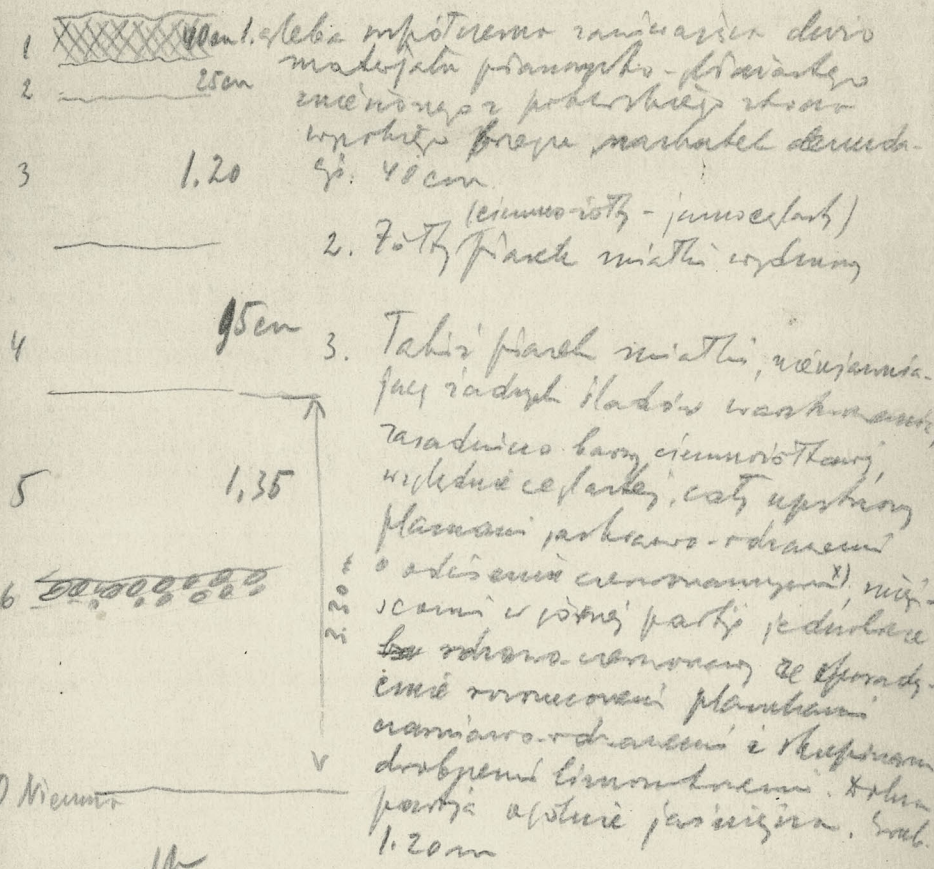 1 40cm 1. gleba współczesna zawierająca dużo
2 25cm materjału piaszczysto-gliniastego
zniesionego z pobliskiego zbocza
wysokiego brzegu, naskutek denuda-
3 1.20 cji. 40cm
(ciemno-żółty - jasnoceglasty)
2. Żółty piasek miałki wydmowy
4 95cm 3. Takiż piasek miałki, nieujawnia-
jący żadnych śladów warstwowania,
zasadniczo barwy ciemnożółtawej,
5 1,35 względnie ceglastej, cały upstrzony
plamami jaskrawo-rdzawemi
o odcieniu x) miej-
6 scami w górnej partji jednolicie
rdzawo-czerwonawy ze sporady-
cznie rozrzuconemi plamkami
czarniawo-rdzawemi i skupinami
drobnemi limonitowemi. Dolna
0 Niemna partja ogólnie jaśniejsza. Grub.
1.20m
2.20m